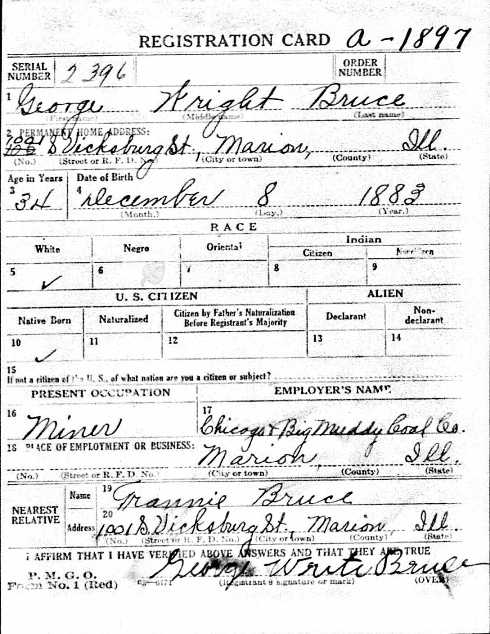 REGISTRATION CARD a-1897
SERIAL NUMBER 2396 ORDER NUMBER
1 George Wright Bruce
(First name) (Middle name) (Last name)
2 PERMANENT HOME ADDRESS:
1001 S Vicksburg St, Marion, Ill.
(No.) (Street or R. F. D. No.) (City or town) (County) (State)
Age in Years Date of Birth
3 34 4 December 8 1883
(Month.) (Day.) (Year.)
RACE
White Negro Oriental Indian
Citizen Noncitizen
5 ✓ 6 7 8 9
U. S. CITIZEN ALIEN
Native Born Naturalized Citizen by Father's Naturalization Before Registrant's Majority Declarant Non-declarant
10 ✓ 11 12 13 14
15
If not a citizen of the U. S., of what nation are you a citizen or subject?
PRESENT OCCUPATION EMPLOYER'S NAME
16 Miner 17 Chicago & Big Muddy Coal Co.
18 PLACE OF EMPLOYMENT OR BUSINESS:
Marion, Ill.
(No.) (Street or R. F. D. No.) (City or town) (County) (State)
NEAREST RELATIVE Name 19 Frannie Bruce
Address 20 1001 S Vicksburg St. Marion Ill.
(No.) (Street or R. F. D. No.) (City or town) (County) (State)
I AFFIRM THAT I HAVE VERIFIED ABOVE ANSWERS AND THAT THEY ARE TRUE
P. M. G. O.
Form No. 1 (Red) George Write Bruce
(Registrant's signature or mark) (OVER)